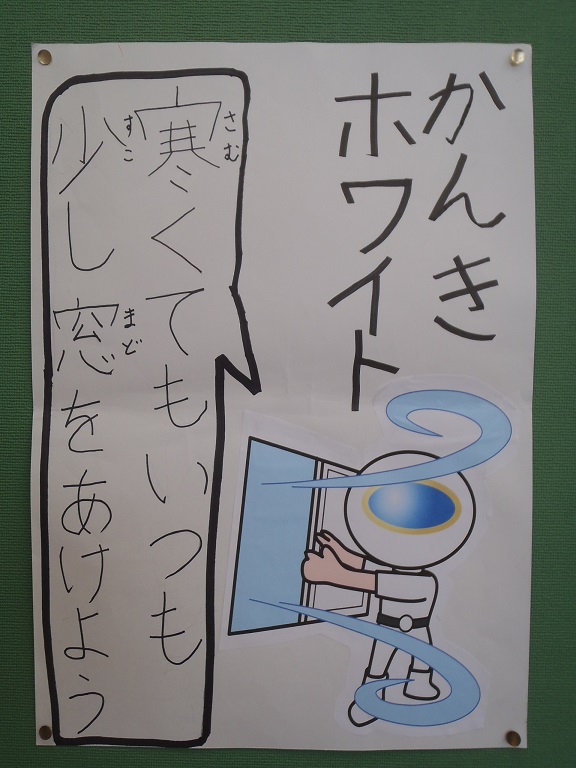 かんき
ホワイト
寒くてもいつも
さむ
少し窓をあけよう
すこ
まど